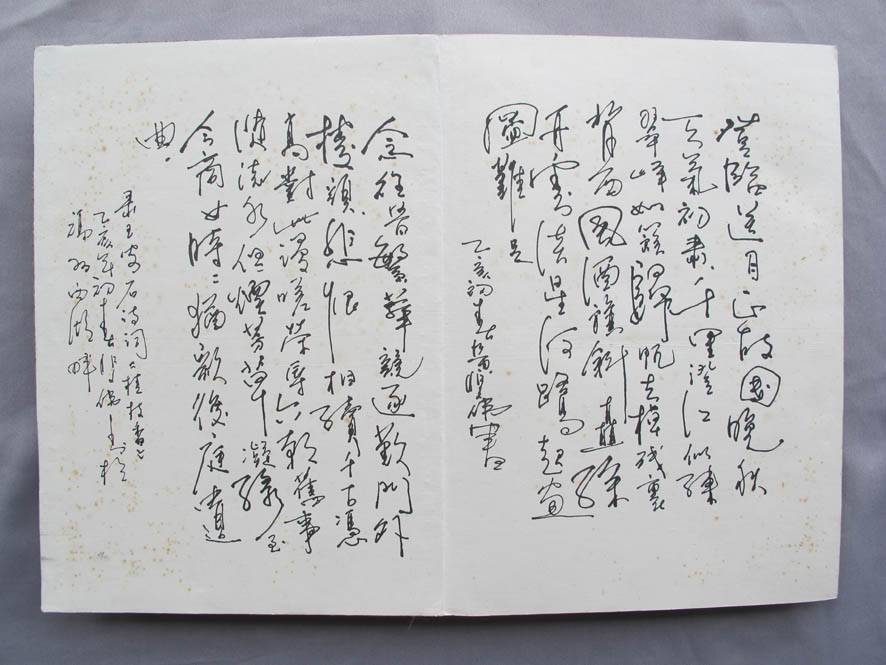 登臨送目正故國晚秋
天氣初肅千里澄江似練
翠峰如簇歸帆去棹殘裏
背西風酒旗斜矗綵
舟雲淡星河鷺起畫
圖難足
乙亥初春書
念往昔繁華競逐歎門外
樓頭悲恨相續千古憑
高對此謾嗟榮辱六朝舊事
隨流水但煙芳草凝綠至
今商女時時猶歌後庭遺
曲
录王安石詩詞《桂枝香》
乙亥年初春書於
福州西湖畔